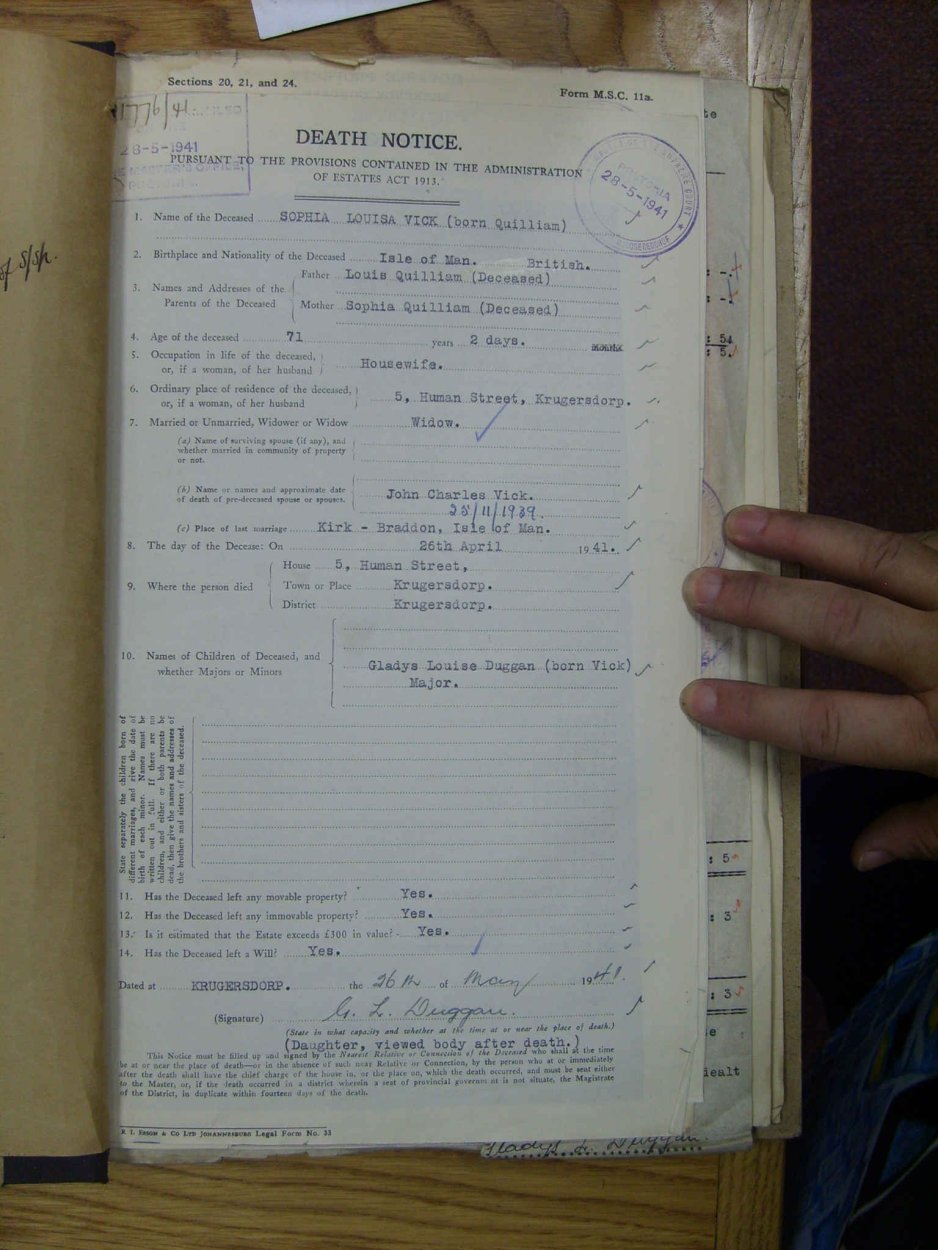 Sections 20, 21, and 24.
Form M.S.C. 11a.
1776/41
28-5-1941
MASTER'S OFFICE
DEATH NOTICE.
PURSUANT TO THE PROVISIONS CONTAINED IN THE ADMINISTRATION
OF ESTATES ACT 1913.
PRETORIA
28-5-1941
1. Name of the Deceased SOPHIA LOUISA VICK (born Quilliam)
2. Birthplace and Nationality of the Deceased Isle of Man. British.
3. Names and Addresses of the Parents of the Deceased
Father Louis Quilliam (Deceased)
Mother Sophia Quilliam (Deceased)
4. Age of the deceased 71 years 2 days. months
5. Occupation in life of the deceased,
or, if a woman, of her husband Housewife.
6. Ordinary place of residence of the deceased,
or, if a woman, of her husband 5, Human Street, Krugersdorp.
7. Married or Unmarried, Widower or Widow Widow.
(a) Name of surviving spouse (if any), and
whether married in community of property
or not.
(b) Name or names and approximate date
of death of pre-deceased spouse or spouses. John Charles Vick.
25/11/1939.
(c) Place of last marriage Kirk - Braddon, Isle of Man.
8. The day of the Decease: On 26th April 1941.
9. Where the person died
House 5, Human Street,
Town or Place Krugersdorp.
District Krugersdorp.
10. Names of Children of Deceased, and
whether Majors or Minors
Gladys Louise Duggan (born Vick)
Major.
State separately the children born of
different marriages, and give the date of
birth of each minor. Names must be
written out in full. If there are no
children, and either or both parents be
dead, then give the names and addresses of
the brothers and sisters of the deceased.
11. Has the Deceased left any movable property? Yes.
12. Has the Deceased left any immovable property? Yes.
13. Is it estimated that the Estate exceeds £300 in value? Yes.
14. Has the Deceased left a Will? Yes.
Dated at KRUGERSDORP. the 26th of May 1941.
(Signature) G. L. Duggan.
(State in what capacity and whether at the time at or near the place of death.)
(Daughter, viewed body after death.)
This Notice must be filled up and signed by the Nearest Relative or Connection of the Deceased who shall at the time
be at or near the place of death—or in the absence of such near Relative or Connection, by the person who at or immediately
after the death shall have the chief charge of the house in, or the place on, which the death occurred, and must be sent either
to the Master, or, if the death occurred in a district wherein a seat of provincial government is not situate, the Magistrate
of the District, in duplicate within fourteen days of the death.
R. L. ESSON & CO LTD JOHANNESBURG Legal Form No. 33
Gladys L. Duggan.
: 54
: 5.
: 5
: 3
: 3
dealt